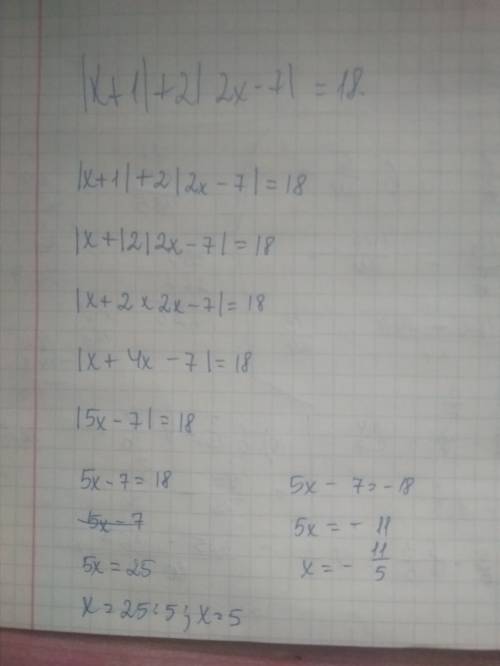 |x+1|+2|2x-7| = 18.
|x+1|+2|2x-7|=18
|x+|2|2x-7|=18
|x+2×2x-7|=18
|x+4x-7|=18
|5x-7|=18
5x-7=18
5x-7
5x=25
x=25:5; x=5
5x-7=-18
5x=-11
x=-11/5